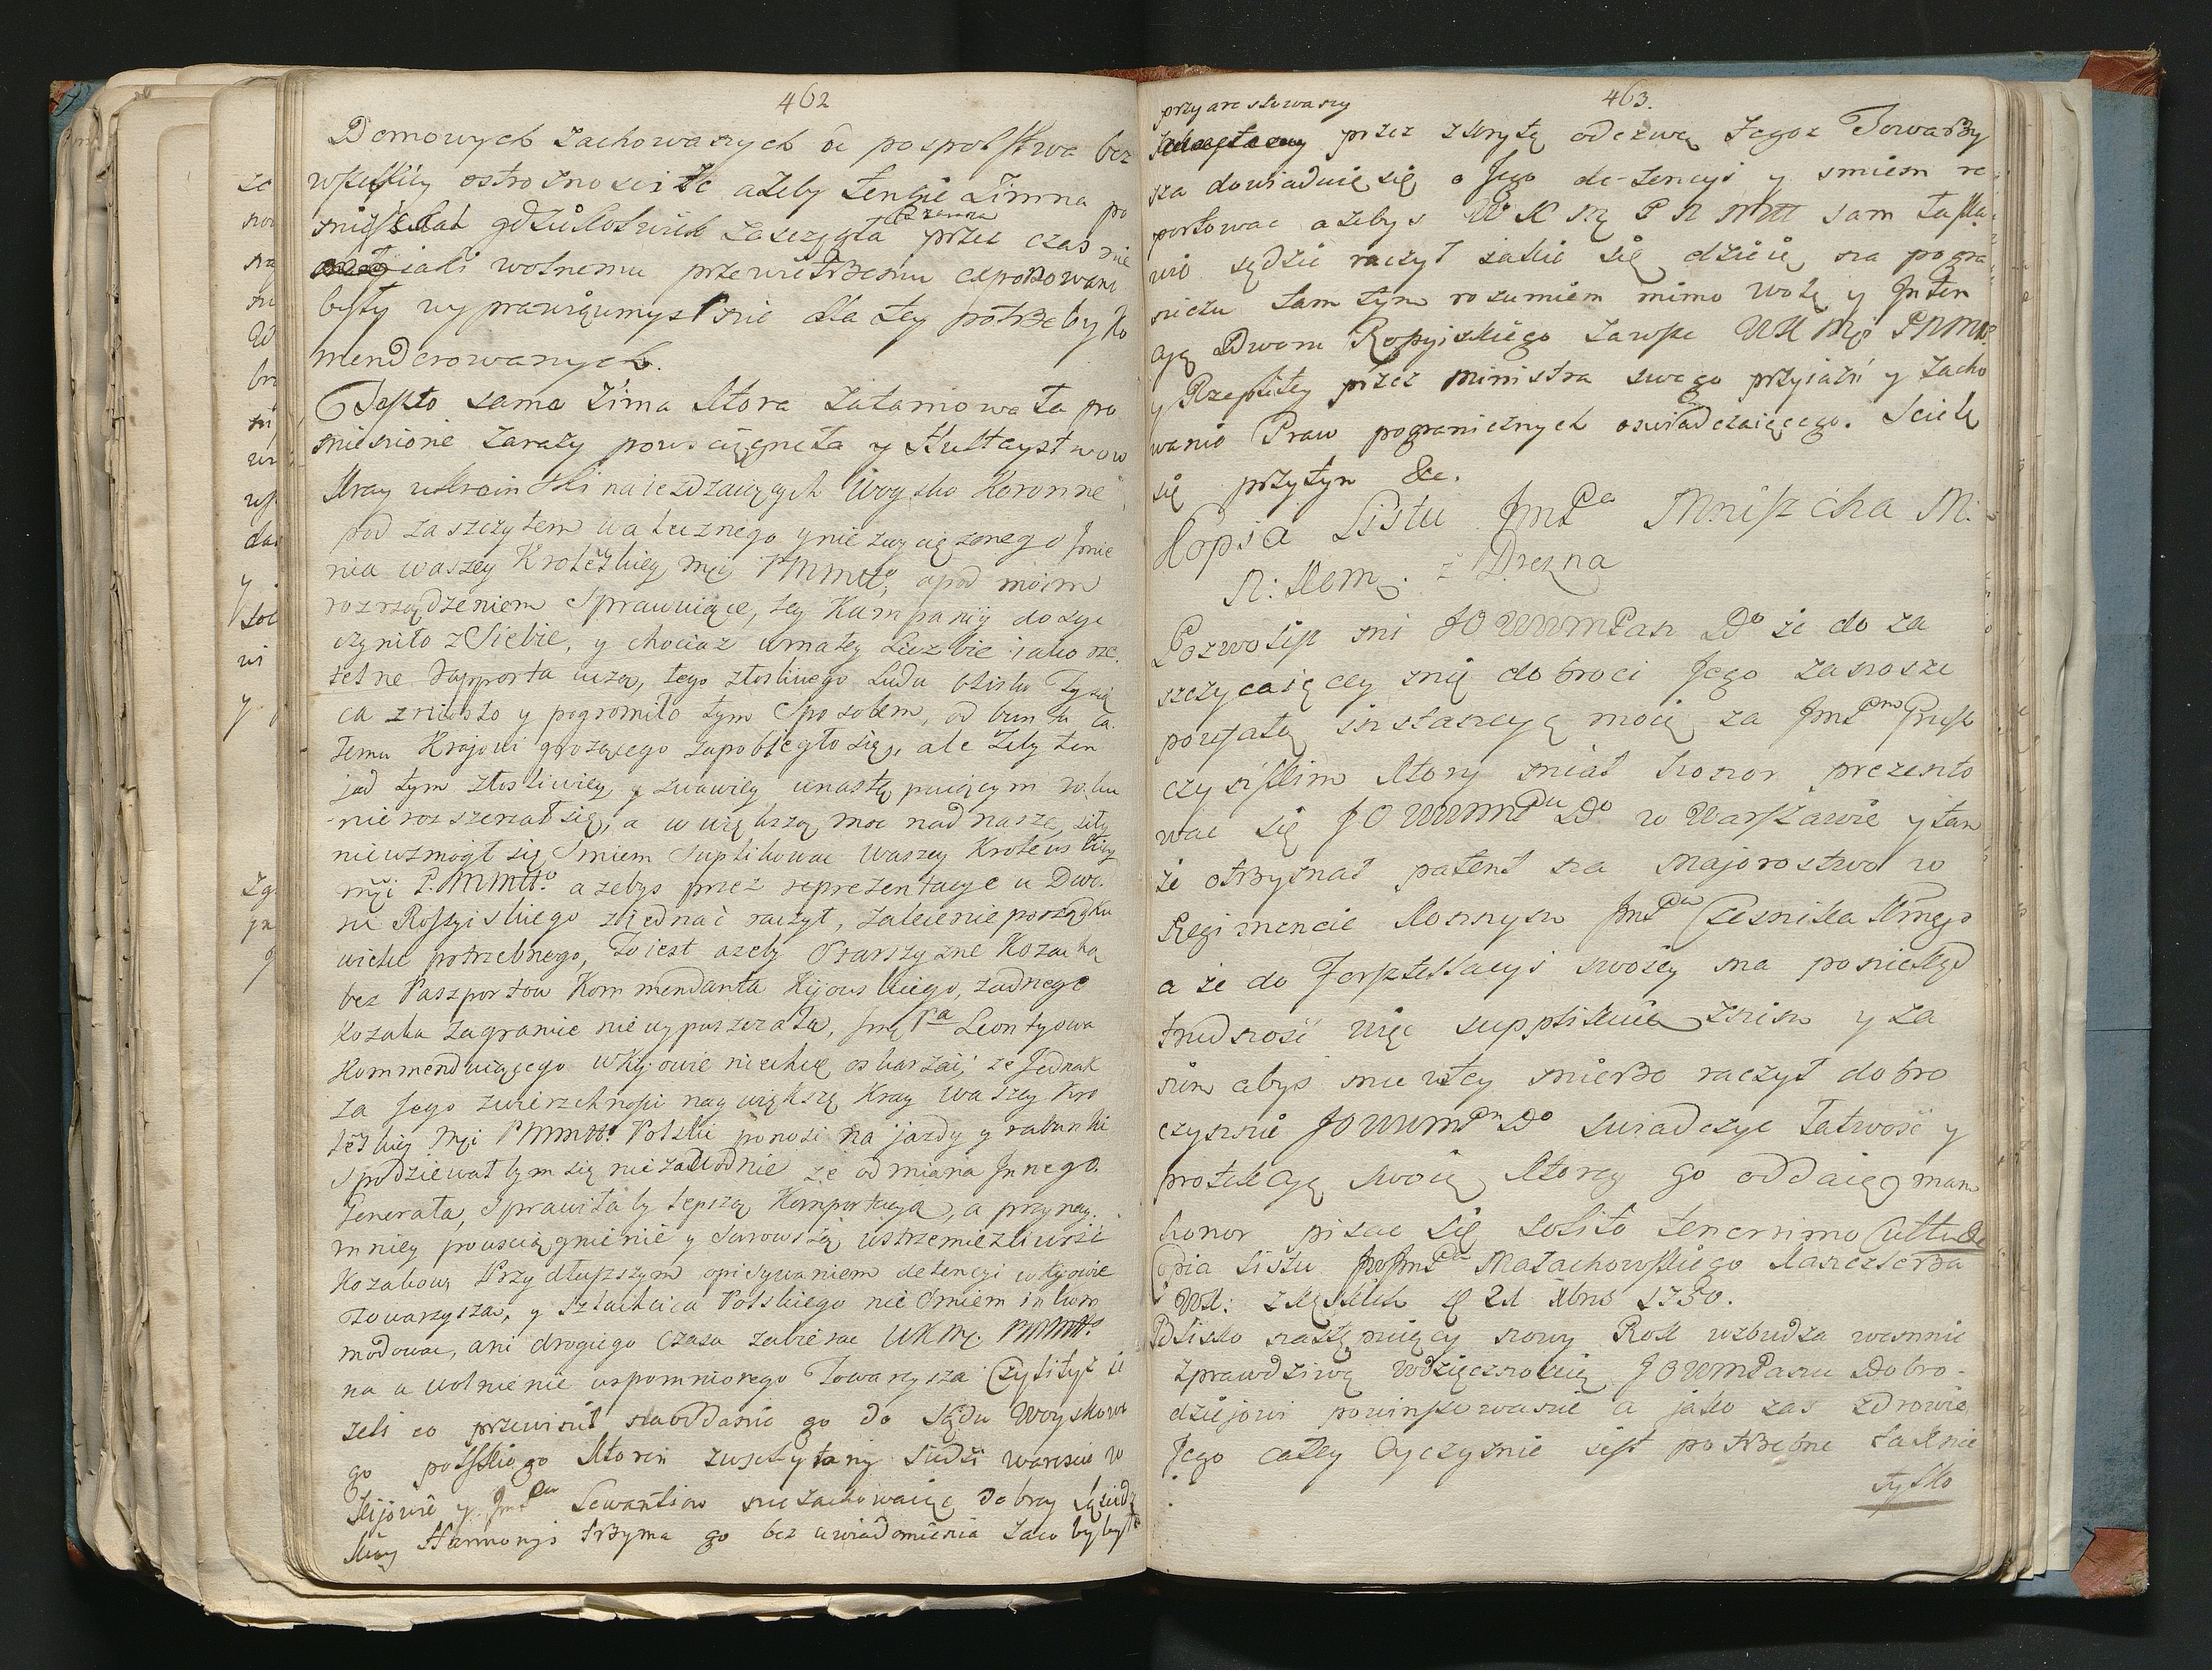 462
Domowych zachowanych od pospolstwa bez
wszelkiey ostrożnosci że ażeby tenże zimna po
mieszkał gdziekolwiek zaczęła przez czas nie
iaki wolnemu przewietrzeniu exponowane
były wyprawię umyslnie dla tey potrzeby Ko
menderowanych.
Taszto sama zima ktora zatamowała pro
mienione zarazy powsciągneła y Hultaystwo w
Kray ukrainski naiezdzaiących Woysko Koronne
pod zaszczytem walecznego y nie zwyciężonego Jmie
nia waszey Krolewskiey Mci PMMttº, a pod moim
rozrządzeniem Sprawuiące, tey Kampanij dosyc
czyniło z Siebie, y chociaz w małey Liczbie iako rze
telne Rapporta uczą, tego złosliwego Ludu blisko Tysią
ca zniosło y pogromiło tym Sposobem, od buntu ca
łemu Krajowi grożącego zapobiegło się, ale żeby ten
jad tym złosliwiey, y żwawiey w następuiącym roku
nie rozszerzał się, a w większą moc nad nasze siły
nie wzmogł się Smiem Supplikowac Waszey Krolewskiey
Mci P.MMttº. azebys przez reprezentacye u Dwo
ru Rossyiskiego ziednać raczył, zalecenie porządku
wielce potrzebnego, To iest azeby Starszyzne Kozacka
bez Paszportow Kommendanta Kijowskiego, żadnego
Kozaka zagranice nie wypuszczała, Jmć Pa Leontyowa
Kommenduiącego w Kijowie niechcę oskarżać, ze Jednak
za Jego zwierzchnosci naywiększą Kray Waszey Kro
lewskiey Mci PMMttº. Polski ponosi najazdy y rabunki
spodziewałbym się niezawodnie że odmiana Innego
Generała, Sprawiłaby lepszą Komportacyą, a przynay
mniey powsciągnienie y Surowszą wstrzemiezliwość
Kozakow Przydłuższym opisywaniem detencyi w Kijowie
Towarzysza, y Szlachcica Polskiego nie smiem inkom
modowac, ani drogiego czasu zabierac WKMci. PMMttº.
na uwolnienie wspomnionego Towarzysza czyliłyż ie
żeli co przewinił na oddanie go do Sądu Woyskowe
go polskiego ktoren zwykłytany siedzi w areszcie w
Kijowie y Jmć Pan Lewantiow nie zachowaiąc dobrey Sąsiedz
kiey Harmonyi trzyma go bez uwiadomienia zaco byłby
463.
przyarestowany
przez zkrytą odezwę Tegoż Towarzy
sza dowiaduię się o Jego de-tencyi y smiem re
portowac ażebys W K Mć P N Mtt sam łaska
wie sędzic raczył jakie się dzieią na pogra
niczu tam tym rozumiem mimo wolę y Inten
cyą Dworu Rossyiskiego zawsze WK Mci PNMttº
y Rzeplitey przez Ministra swego przyiazń y zacho
wanie Praw pogranicznych oswiadczaiącego. Scielę
się przytym &c.
Kopia Listu JmPa Mniszcha M:
N: Kem: z Drezna
Pozwolisz mi JOWWMPan Do że do za
szczycaiącey mię dobroci Jego zanosze
poufałą instancyą moią za JmPmo Prusz
czyńskim ktory miał honor prezento
wac się JOWWMPu Do w Warszawie y tam
że otrzymał patent na Majorostwo w
Regimencie Konnym JmPa Czesnika Kmego
a że do Forsztellacyi swoiey ma poniekąd
trudność więc supplikuie zanim y za
nim abys mu w tey mierze raczył dobro
czynnie JOWWMPn Do swiadczyc łatwość y
protekcyą swoią ktorey go oddaiąc mam
honor pisac się solito tenerrimo Cultu &c
Copia Listu JoJmPa Małachowskiego Kanclerza
WK: z Końskich d 21 Xbris 1750.
Blisko następuiący nowy Rok wzbudza wemnie
zprawdziwą wdzięcznoscią JOWMPanu Dobro-
dziejowi powinszowanie a jako zas zdrowie
Jego całey Oyczyznie iest potrzebne taknie
tylko